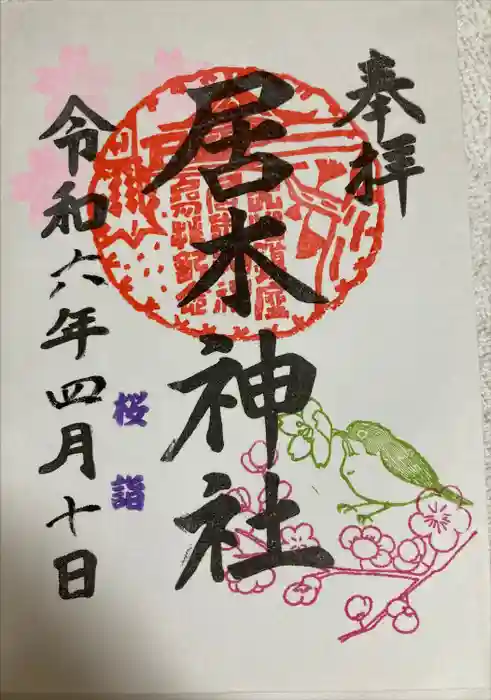 奉拝
居木神社
桜詣
令和六年四月十日